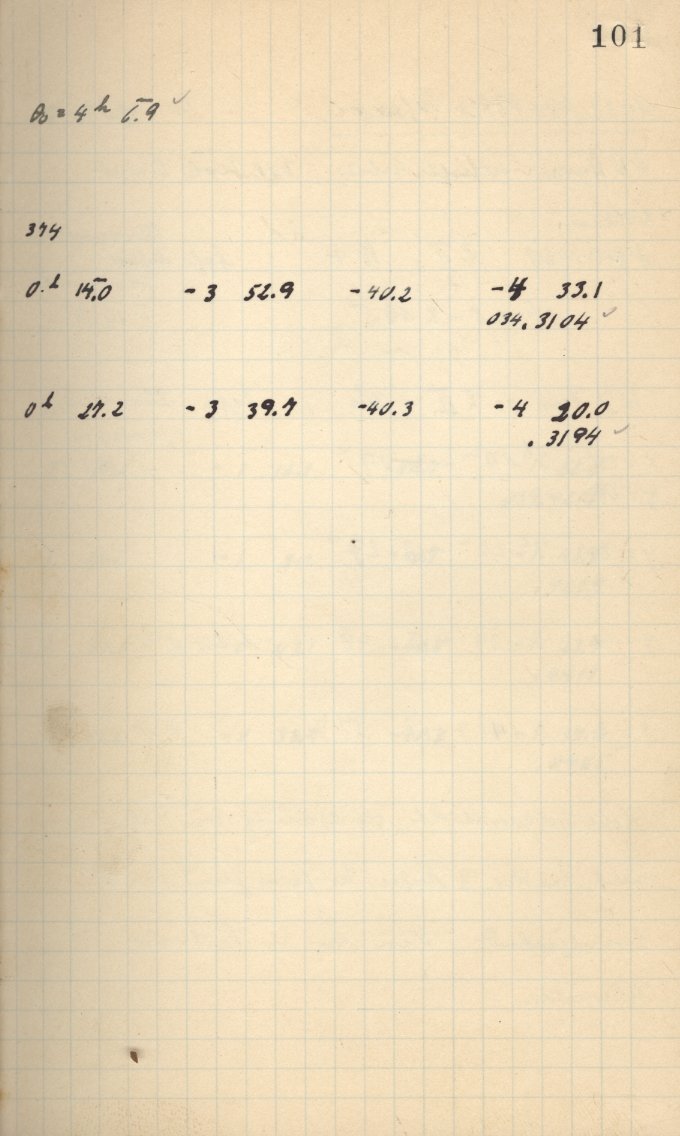 101
θ₀ = 4ʰ 6.9 ✓
374
0.ʰ 14.0 -3 52.9 -40.2 -4 33.1
034.3104 ✓
0ʰ 27.2 -3 39.7 -40.3 -4 20.0
.3194 ✓